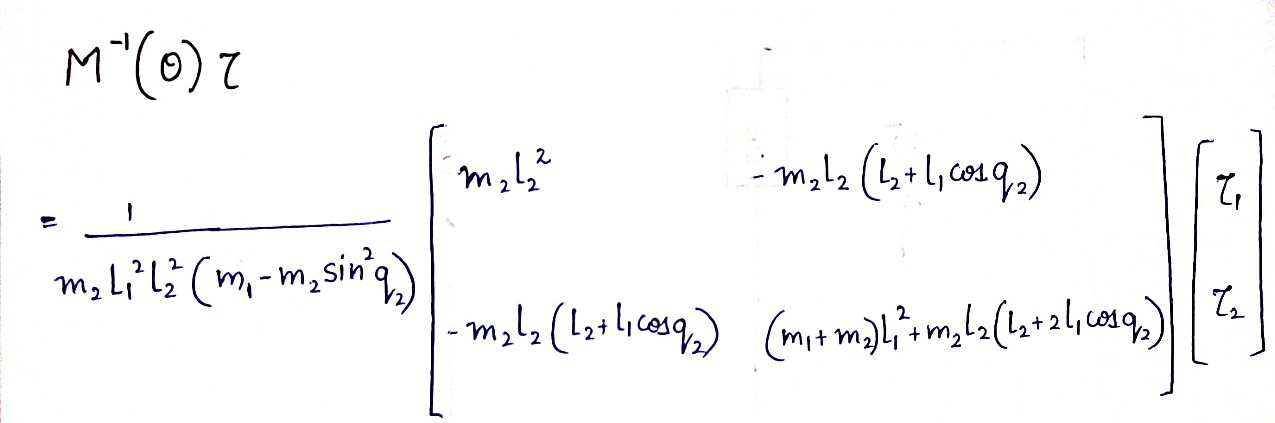 M⁻¹(θ) τ
= \frac{1}{m₂ L₁² L₂² (m₁ - m₂ sin² q₂)} \begin{bmatrix} m₂ l₂² & - m₂ l₂ (l₂ + l₁ cos q₂) \\ - m₂ l₂ (l₂ + l₁ cos q₂) & (m₁ + m₂) l₁² + m₂ l₂ (l₂ + 2 l₁ cos q₂) \end{bmatrix} \begin{bmatrix} τ₁ \\ τ₂ \end{bmatrix}